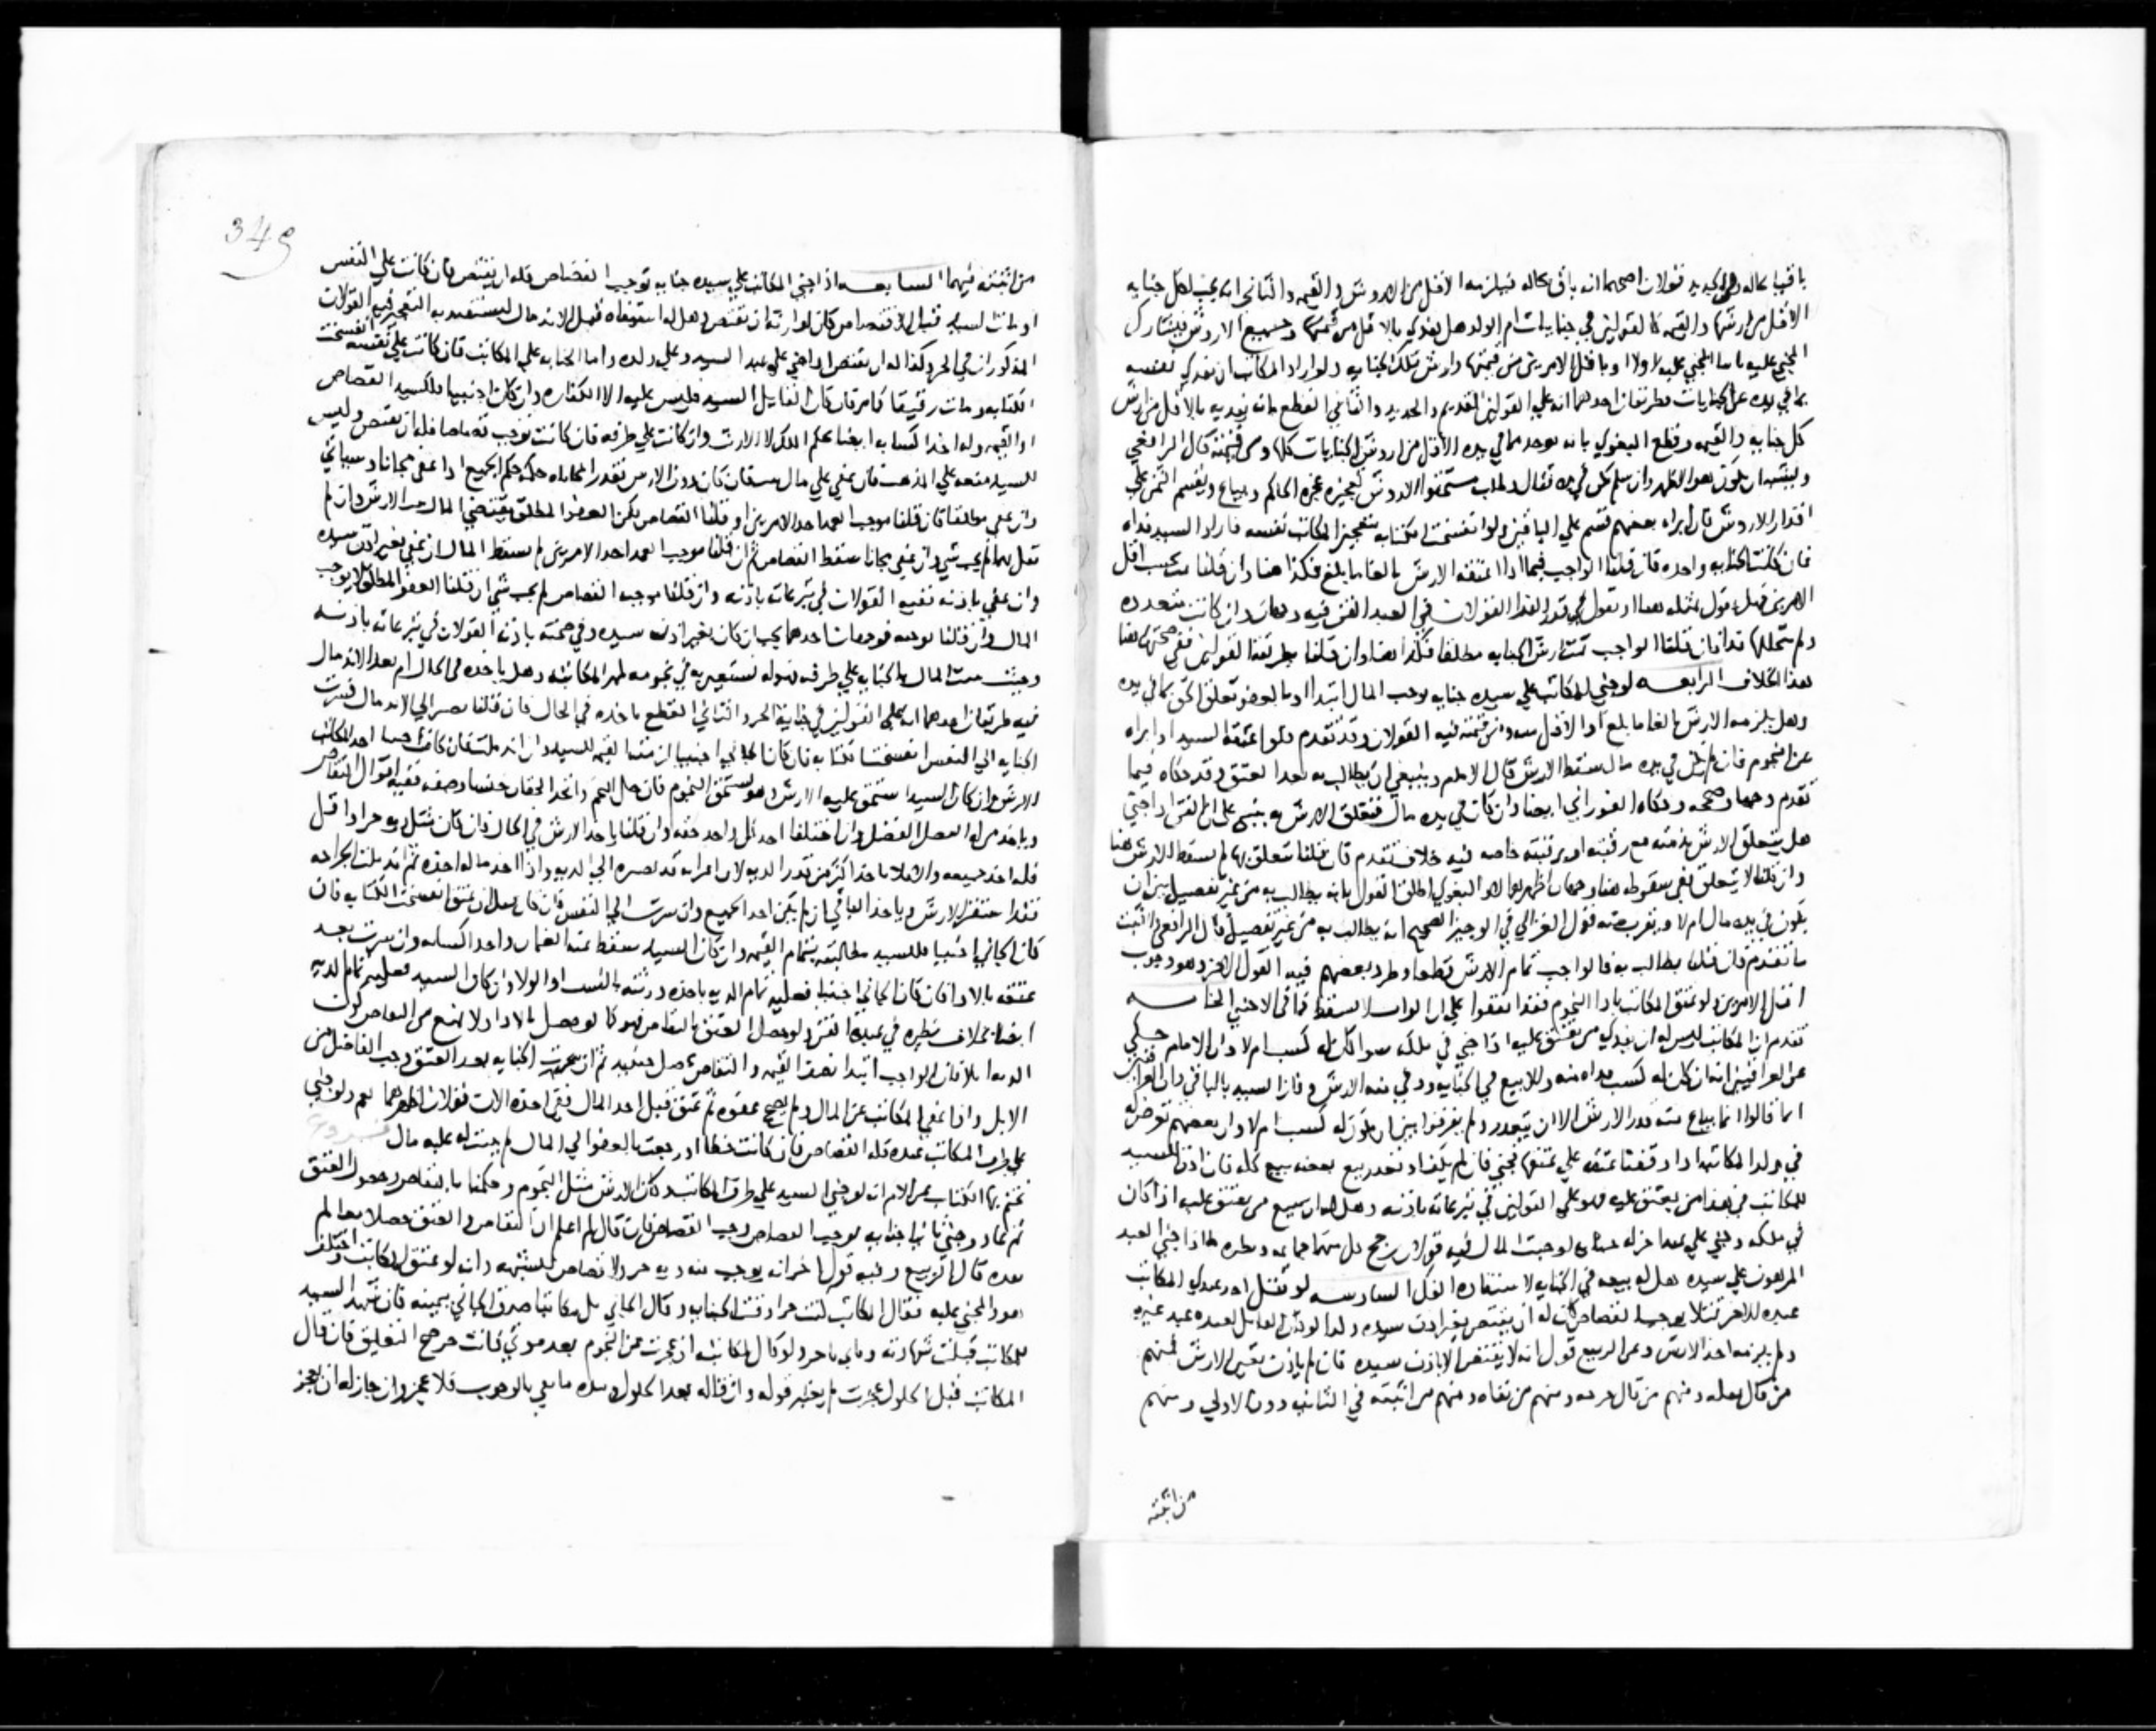 باقيا بحاله وفي الجديد قولان اصحهما انه باق بحاله فيلزمه الاقل من الاروش والقيمه والثاني انه يجب لكل جنايه
الاقل من ارشها والقيمه كالقولين في جنايات ام الولد هل يفدي بالاقل من قيمتها وجميع الاروش فيتشارك
المجني عليه ثانيا المجني عليه اولا او باقل الامرين من قيمتها وارش تلك الجنايه ولو اراد المكاتب ان يفدي نفسه
بما في يده عن الجنايات فطريقان احدهما انه علي القولين القديم والجديد والثاني القطع بانه يفديه بالاقل من ارش
كل جنايه والقيمه وقطع البغوي بانه يوخذ مما في يده الاقل من اروش الجنايات كلها ومن قيمته قال الرافعي
ويشبه ان يكون هو الاظهر وان لم يكن في يده مال وطلب مستحقوا الاروش تعجيزه عجزه الحاكم ويباع ويقسم الثمن علي
اقدار الاروش فان ابراه بعضهم قسم علي الباقين ولو انفسخت الكتابه بتعجيز المكاتب نفسه فاراد السيد فداه
فان كانت الجنايه واحده فان قلنا الواجب فيما اذا اعتقه الارش بالغا ما بلغ فكذا هنا وان قلنا يجب اقل
الامرين فهل نقول بمثله هنا او نقول في قدر الفدا القولان في العبد القن فيه وجهان وان كانت متعدده
ولم يتخللها فدا فان قلنا الواجب ارش الجنايه مطلقا فكذا هنا وان قلنا بطريقه القولين ففي صحتها هنا
هذا الخلاف الرابعه لو جني المكاتب علي سيده جنايه توجب المال ابتدا او بالعفو تعلق الحق بما في يده
وهل يلزمه الارش بالغا ما بلغ او الاقل منه ومن قيمته فيه القولان وقد تقدم فلو اعتقه السيد او ابراه
عن النجوم فان لم يكن في يده مال سقط الارش قال الامام وينبغي ان يطالب به بعد العتق وقد حكاه فيما
تقدم وجها وصححه وحكاه الفوراني ايضا وان كان في يده مال فتعلق الارش به ينبني علي ان القن اذا جني
هل يتعلق الارش بذمته مع رقبته او برقبته خاصه فيه خلاف تقدم فان قلنا يتعلق بها لم يسقط الارش هنا
وان قلنا لا يتعلق ففي سقوطه هنا وجهان اظهرهما لا والبغوي اطلق القول بانه يطالب به من غير تفصيل بين ان
يكون في يده مال ام لا ويقرب منه قول الغزالي في الوجيز الصحيح انه يطالب به من غير تفصيل قال الرافعي واثبت
ما تقدم فان قلنا يطالب به فالواجب تمام الارش قطعا وطرد بعضهم فيه القول الاخر وهو وجوب
اقل الامرين ولو عتق المكاتب بادا النجوم فقد اتفقوا علي ان الواجب لا يسقط كما في الاجنبي الخامسه
تقدم ان المكاتب ليس له ان يفدي من يعتق عليه اذا جني في ملكه سوا كان له كسب ام لا وان الامام حكي
عن العراقيين انه ان كان له كسب فداه منه وللبيع في الجنايه ووفي منه الارش وفاز السيد بالباقي وان العراقيين
انما قالوا انما يباع منه قدر الارش الا ان يتعذر ولم يفرقوا بين ان يكون له كسب ام لا وان بعضهم تعرض له
في ولد المكاتبه اذا وقفنا عتقه علي عتقها فجني فان لم يف او تعذر بيع بعضه بيع كله فان اذن السيد
للمكاتب في فدا من يعتق عليه فهو علي القولين في تبرعاته باذنه وهل له ان يبيع من يعتق عليه اذا كان
في ملكه وجني علي عبد اخر له جنايه لو وجبت المال فيه قولان رجح كل منهما جماعه ونظيره ما اذا جني العبد
المرهون علي سيده هل له بيعه في الجنايه لاستفاده الفك السادسه لو قتل احد عبدي المكاتب
عبده للاخر قتلا يوجب القصاص كان له ان يقتص بغير اذن سيده ولو كان القاتل لعبده عبد غيره
ولم يلزمه اخذ الارش وعن الربيع قول انه لا يقتص الا باذن سيده فان لم ياذن تعين الارش فمنهم
من قال بعله ومنهم من قال خرجه ومنهم من نفاه ومنهم من اثبته في الثانيه دون الاولي ومنهم
من اثبته
349
من اثبته فيهما السابعه اذا جني المكاتب علي سيده جنايه توجب القصاص فله ان يقتص فان كانت علي النفس
او مات السيد قبل الاقتصاص كان لوارثه ان يقتص وهل له استيفاه قبل الاندمال ليستفيد به التعجيز فيه القولان
المذكوران في الحر وكذا له ان يقتص اذا جني علي عبد السيد وعلي ولده واما الجنايه علي المكاتب فان كانت علي نفسه انفسخت
الكتابه ومات رقيقا كما مر فان كان القاتل السيد فليس عليه الا الكفاره وان كان اجنبيا فللسيد القصاص
او القيمه وله اخذ اكسابه ايضا بحكم الملك لا الارث وان كانت علي طرفه فان كانت توجب قصاصا فله ان يقتص وليس
للسيد منعه علي المذهب فان عفي علي مال فان كان دون الارش فقدر المحاباه حكمه حكم الجميع اذا عفي مجانا وسياتي
وان عفي مطلقا فان قلنا موجب العمد احد الامرين او قلنا القصاص لكن العفو المطلق يقتضي المال وجب الارش وان لم
نقل بهما لم يجب شي وان عفي مجانا سقط القصاص ثم ان قلنا موجب العمد احد الامرين لم يسقط المال ان عفي بغير اذن سيده
وان عفي باذنه ففيه القولان في تبرعاته باذنه وان قلنا موجبه القصاص لم يجب شي ان قلنا العفو المطلق لا يوجب
المال وان قلنا يوجبه فوجهان احدهما يجب ان كان بغير اذن سيده وفي صحته باذنه القولان في تبرعاته باذنه
وحيث يثبت المال بالجنايه علي طرفه فهو له يستعين به في نجومه كمهر المكاتبه وهل ياخذه في الحال ام بعد الاندمال
فيه طريقان احدهما انه علي القولين في جنايه الحر والثاني القطع باخذه في الحال فان قلنا يصبر الي الاندمال فسرت
الجنايه الي النفس انفسخت الكتابه فان كان الجاني اجنبيا لزمته القيمه للسيد وان اندملت فان كان الجاني اجنبيا اخذ المكاتب
الارش وان كان السيد استحق عليه الارش وهو يستحق النجوم فان حل النجم واتحد الحقان جنسا وصفه ففيه اقوال التقاص
وياخذ من له الفضل الفضل وان اختلفا اخذ كل واحد حقه وان قلنا ياخذ الارش في الحال فان كان مثل ديه حر او اقل
فله اخذ جميعه والا فلا ياخذ اكثر من قدر الديه لان الجراحه قد تصير الي الديه واذا اخذ ماله اخذه ثم اندملت الجراحه
فقد استقر الارش وياخذ الباقي ان لم يكن اخذ الجميع وان سرت الي النفس فان كان قبل ان يعتق انفسخت الكتابه فان
كان الجاني اجنبيا فللسيد مطالبته بتمام القيمه وان كان السيد سقط عنه الضمان واخذ اكسابه وان سرت بعد
عتقه بالادا فان كان الجاني اجنبيا فعليه تمام الديه ياخذه ورثته بالنسب او الولا وان كان السيد فعليه تمام الديه
ايضا بخلاف نظيره في عبده القن ولو حصل العتق بالتقاص فهو كما لو حصل بالادا ولا يمنع من التقاص كون
الديه ابلا فان الواجب ابتدا نصف القيمه والتقاص يحصل حينيذ ثم ان سرت الجنايه بعد العتق وجب الفاضل من
الابل واذا عفي المكاتب عن المال ولم يصح عفوه ثم عتق قبل اخذ المال ففي اخذه الان قولان اظهرهما نعم ولو جني
علي طرف المكاتب عبده فله القصاص فان كانت خطا او رجعت بالعفو الي المال لم يثبت له عليه مال
نختم بها الكتاب عن الام انه لو جني السيد علي طرف المكاتب وكان الارش مثل النجوم وحكمنا بالتقاص وحصول العتق
ثم عاد وجني ثانيا جنايه توجب القصاص وجب القصاص فان قال لم اعلم ان التقاص والعتق حصلا معا لم
يعذر قال الربيع وفيه قول اخر انه يوجب منه ديه حر ولا قصاص للشبهه وانه لو عتق المكاتب واختلف
هو والمجني عليه فقال المكاتب كنت حرا وقت الجنايه وقال الجاني بل مكاتبا صدق الجاني بيمينه فان شهد السيد
للمكاتب قبلت شهادته ولو قال للمكاتب ان عجزت عن النجوم بعد موتي فانت حر صح التعليق فان قال
المكاتب قبل الحلول عجزت لم يعتبر قوله وان قاله بعد الحلول وبيده ما يفي بالواجب فلا عجز وان جاز له ان يعجز